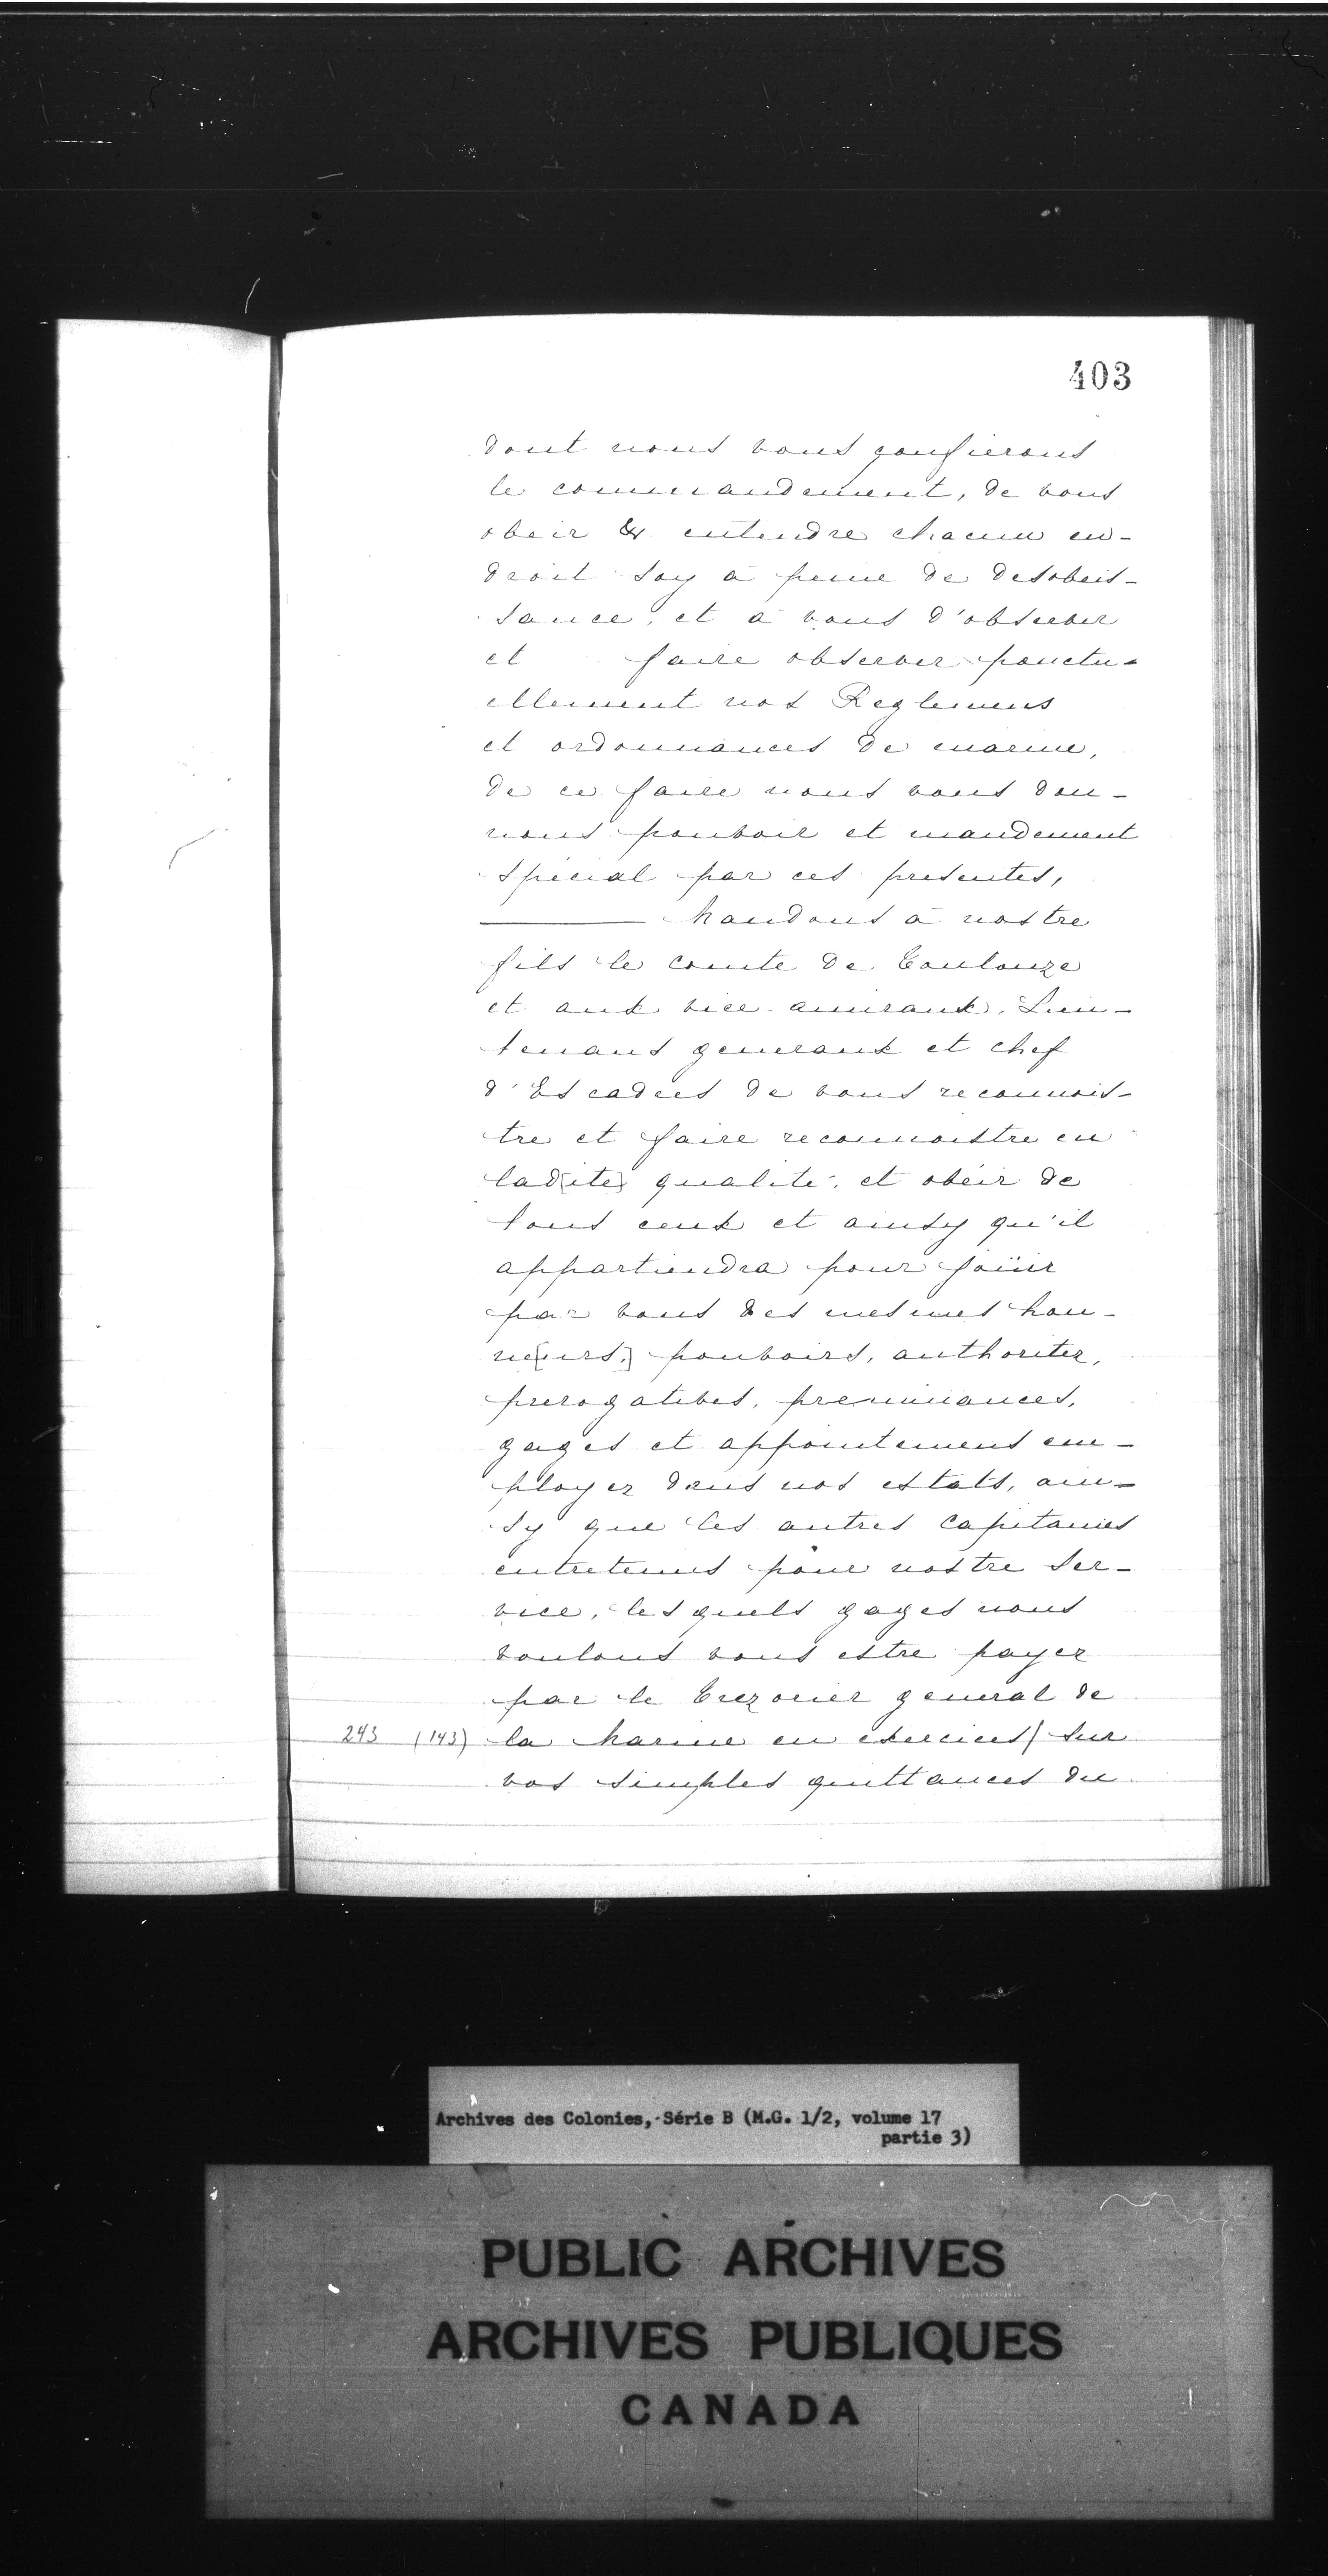 403
dont nous vous confierons
le commandement, de vous
obeir & entendre chacun en-
droit soy a peine de desobeis-
sance, et a vous d'observer
et faire observer ponctu-
ellement nos Reglemens
et ordonnances de marine,
de ce faire nous vous don-
nons pouvoir et mandement
special par ces presentes,
Mandons a nostre
fils le comte de Toulouze
et aux vice-amiraux, Lieu-
tenans generaux et chef
d'Escadres de vous reconnois-
tre et faire reconnoistre en
lad[ite] qualité, et obéir de
tous ceux et ainsy qu'il
appartiendra pour joüir
par vous des mesmes hon-
ne[urs,] pouvoirs, authoritez,
prerogatives, preminances,
gages et appointemens em-
ployez dans nos estats, ain-
sy que les autres capitaines
entretenus pour nostre ser-
vice, lesquels gages nous
voulons vous estre payez
par le Trezorier general de
243 (143) la Marine en exercices/ sur
vos simples quittances du
Archives des Colonies, Série B (M.G. 1/2, volume 17
partie 3)
PUBLIC ARCHIVES
ARCHIVES PUBLIQUES
CANADA